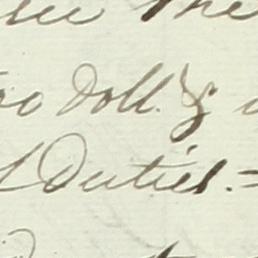 see the
00 Doll. &
Duties. =